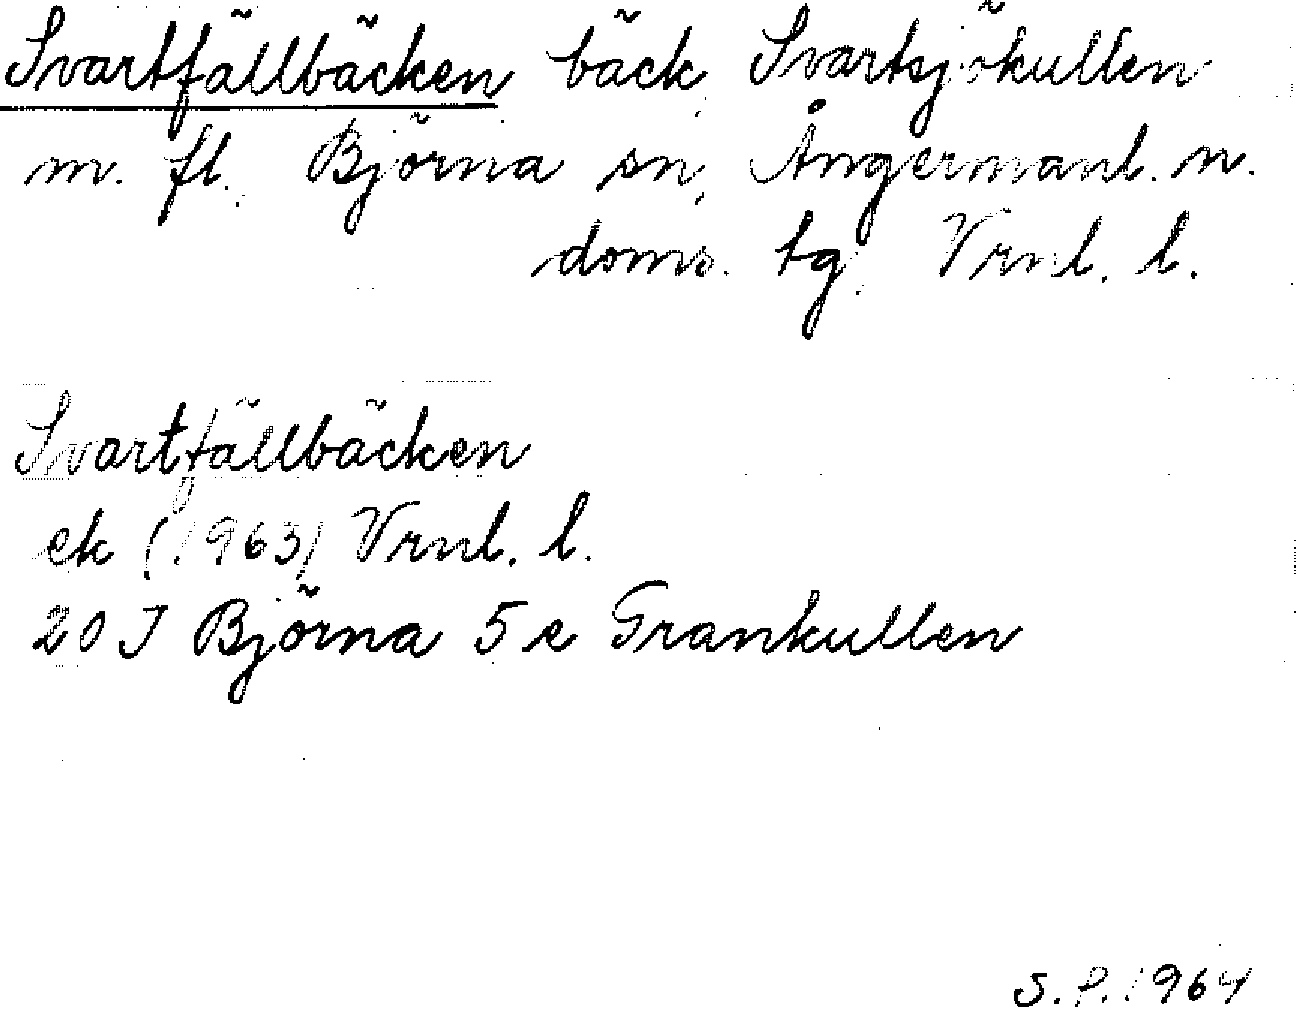 Svartfällbäcken bäck, Svartsjökullen
m. fl., Björna sn, Ångermanl. n.
doms. tg, Vrnl. l.
Svartfällbäcken
ek (1963) Vrnl. l.
20 J Björna 5 e Grankullen
S.P. 1964